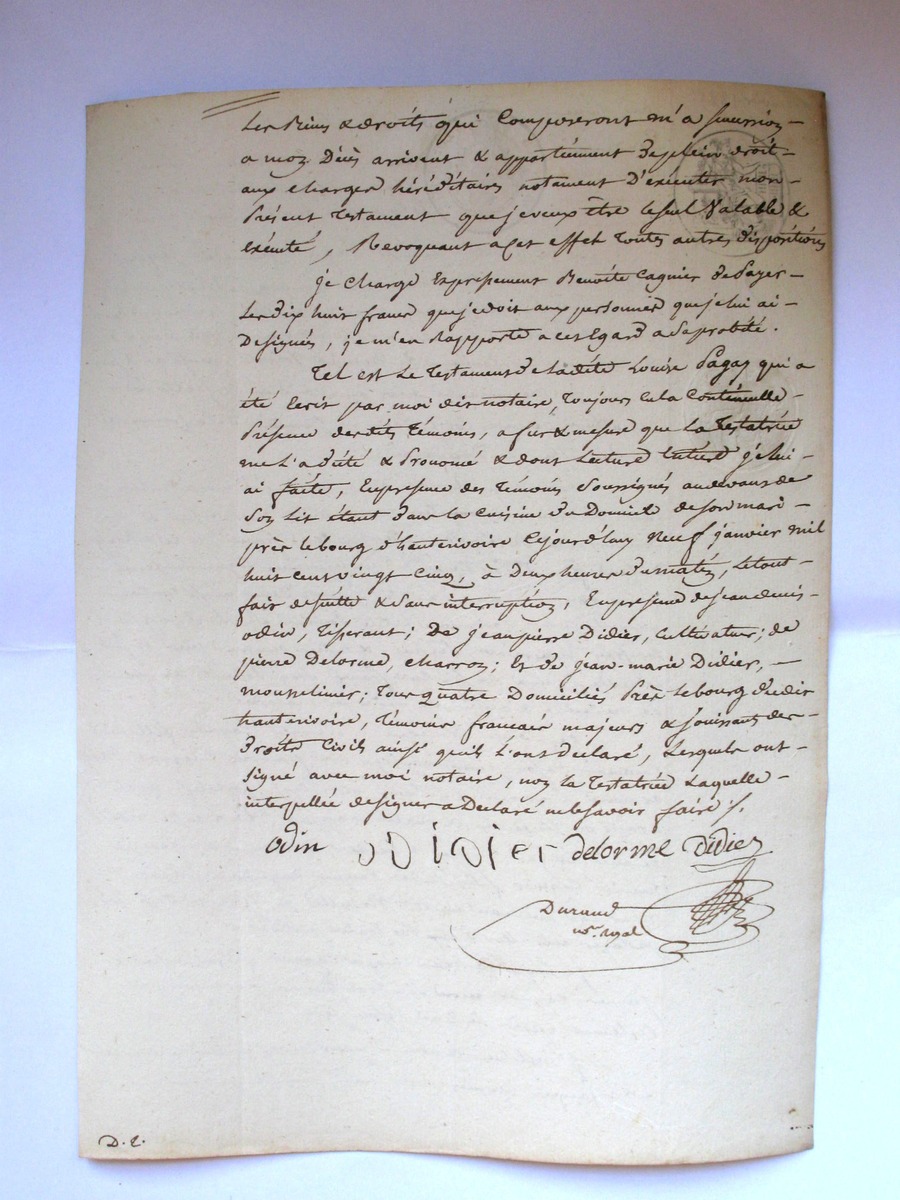 Les Biens & droits qui Composeront m'a succession
a mon Décès arrivent & appartiennent de plein droit
aux charges héréditaires notament D'executer mon
Présent Testament que je veux être le seul Valable &
Exécuté, Revoquant a cet effet toutes autres dispositions
je charge Expressement Benoîte Cagnier de Payer
Les dix huit francs que je doit aux personnes que je lui ai
Designés, je m'en Rapporte a cet Egard a sa probité.
Tel est le Testament de ladite Louise Pagay qui a
été Ecrit par moi dit notaire, toujours en la Continuelle
Présence desdits témoins, a fur & mesure que la Testatrice
me L'a dicté & Prononcé & dont Lecture je lui
ai faite, En presence des témoins soussignés au devant de
son Lit étant dans la cuisine du Domicile de son mari
près le bourg d'hauterivoire Cejourd'huy Neuf janvier mil
huit cent vingt cinq, à Deux heures du matin, le tout
fait de suitte & sans interruption, En presence de jean denis
odin, tisserant; De jean pierre Didier, Cultivateur; de
pierre Delorme, charron; Et de jean-marie Didier,
mousselinier; tous quatre Domiciliés Près le bourg dudit
hauterivoire, témoins francais majeurs & jouissant des
droits Civils ainsi qu'ils L'ont declaré, Lesquels ont
signé avec moi notaire, non la Testatrice Laquelle
interpellée de signer a Declaré ne le savoir faire ./.
odin Didier delorme Didier
Durand
nre. royal
D. L.